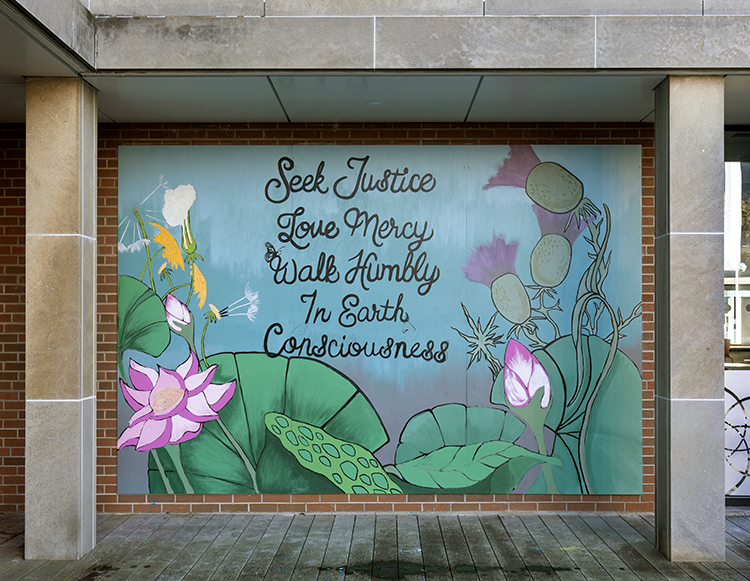 Seek Justice
Love Mercy
Walk Humbly
In Earth
Consciousness